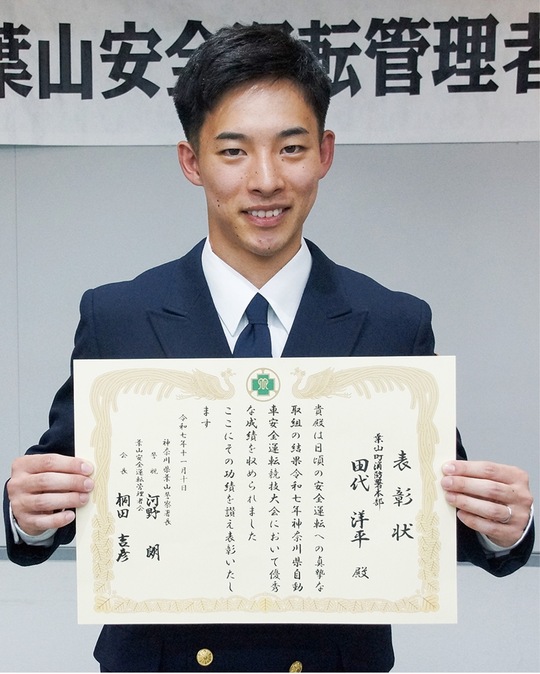 葉山安全運転管理者
表彰状
葉山町消防署本部
田代 洋平 殿
貴殿は日頃の安全運転への真摯な
取組の結果令和七年神奈川県自動
車安全運転競技大会において優秀
な成績を収められました
ここにその功績を讃え表彰いたし
ます
令和七年十一月十日
神奈川県葉山警察署長
警視 河野 朗
葉山安全運転管理者会
会長 桐田 吉彦